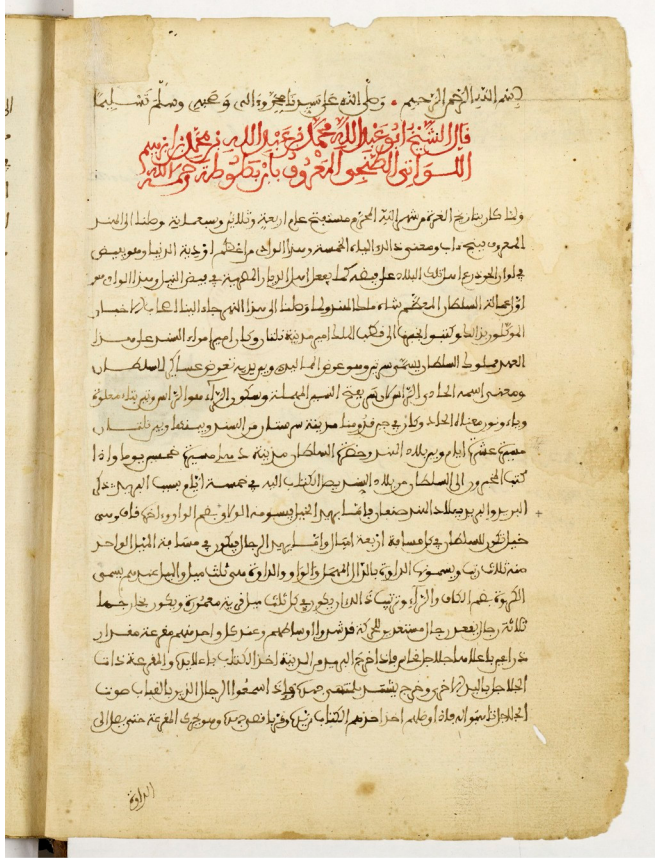 بسم الله الرحمن الرحيم • وصلى الله على سيدنا محمد وآله وصحبه وسلم تسليما
قال الشيخ أبو عبد الله محمد بن عبد الله بن محمد بن ابرهيم
اللواتي الطنجي المعروف بابن بطوطة رحمه الله
ولما كان بتاريخ الغرة من شهر الله المحرم مفتتح عام اربعة وثلاثين وسبعماية وصلنا الى السند
المعروف ببنج ءاب ومعنى ذلك المياه الخمسة وهذا الوادي من اعظم اودية الدنيا وهو يفيض
في اوان الحر فيزرع اهل تلك البلاد على فيضه كما يفعل اهل الديار المصرية في فيض النيل وهذا الوادي هو
اول عمالة السلطان المعظم شاه ملك السند ولما وصلنا الى هذا النهر جاء الينا اصحاب الاخبار
الموكلون بذلك وكتبوا بخبرنا الى قطب الملك امير مدينة ملتان وكان امير امراء السند على هذا
العهد مملوك السلطان يسمى سرتيز وهو عرض المماليك وبين يديه تعرض عساكر السلطان
ومعنى اسمه الحاد الراس لان سر بفتح السين المهملة وسكون الراء هو الراس وتيز بتاء معلوة
وياء وزاي معناه الحاد وكان في حين قدومنا مدينة سيوستان من السند وبينها وبين ملتان
مسيرة عشرة ايام وبين بلاد السند وحضرة السلطان مدينة دهلي مسيرة خمسين يوما واذا
كتب المخبرون الى السلطان من بلاد السند يصل الكتاب اليه في خمسة ايام بسبب البريد ذكر
البريد والبريد ببلاد الهند صنفان فاما بريد الخيل فيسمونه الولاق بضم الواو وهي
خيل تكون للسلطان في كل مسافة اربعة اميال واما بريد الرجال فيكون في مسافة الميل الواحد
منه ثلاث رتب ويسمونها الداوة بالدال المهمل والواو والداوة هي ثلث ميل والميل عندهم يسمى
الكروة بضم الكاف والراء وترتيب ذلك ان يكون في كل ثلث ميل قرية معمورة ويكون بخارجها
ثلاثة رجال مستعدين للحركة قد شدوا اوساطهم وعند كل واحد منهم مقرعة مقدار
ذراعين باعلاها جلاجل نحاس فاذا خرج البريد من المدينة اخذ الكتاب باعلا يده والمقرعة ذات
الجلاجل باليد الاخرى وخرج يشتد بمنتهى جهده فاذا سمعوا الرجال الذين بالقباب صوت
الجلاجل تاهبوا له فاذا وصلهم اخذ احدهم الكتاب من يده ومر باقصى جهده وهو يحرك المقرعة حتى يصل الى
الداوة